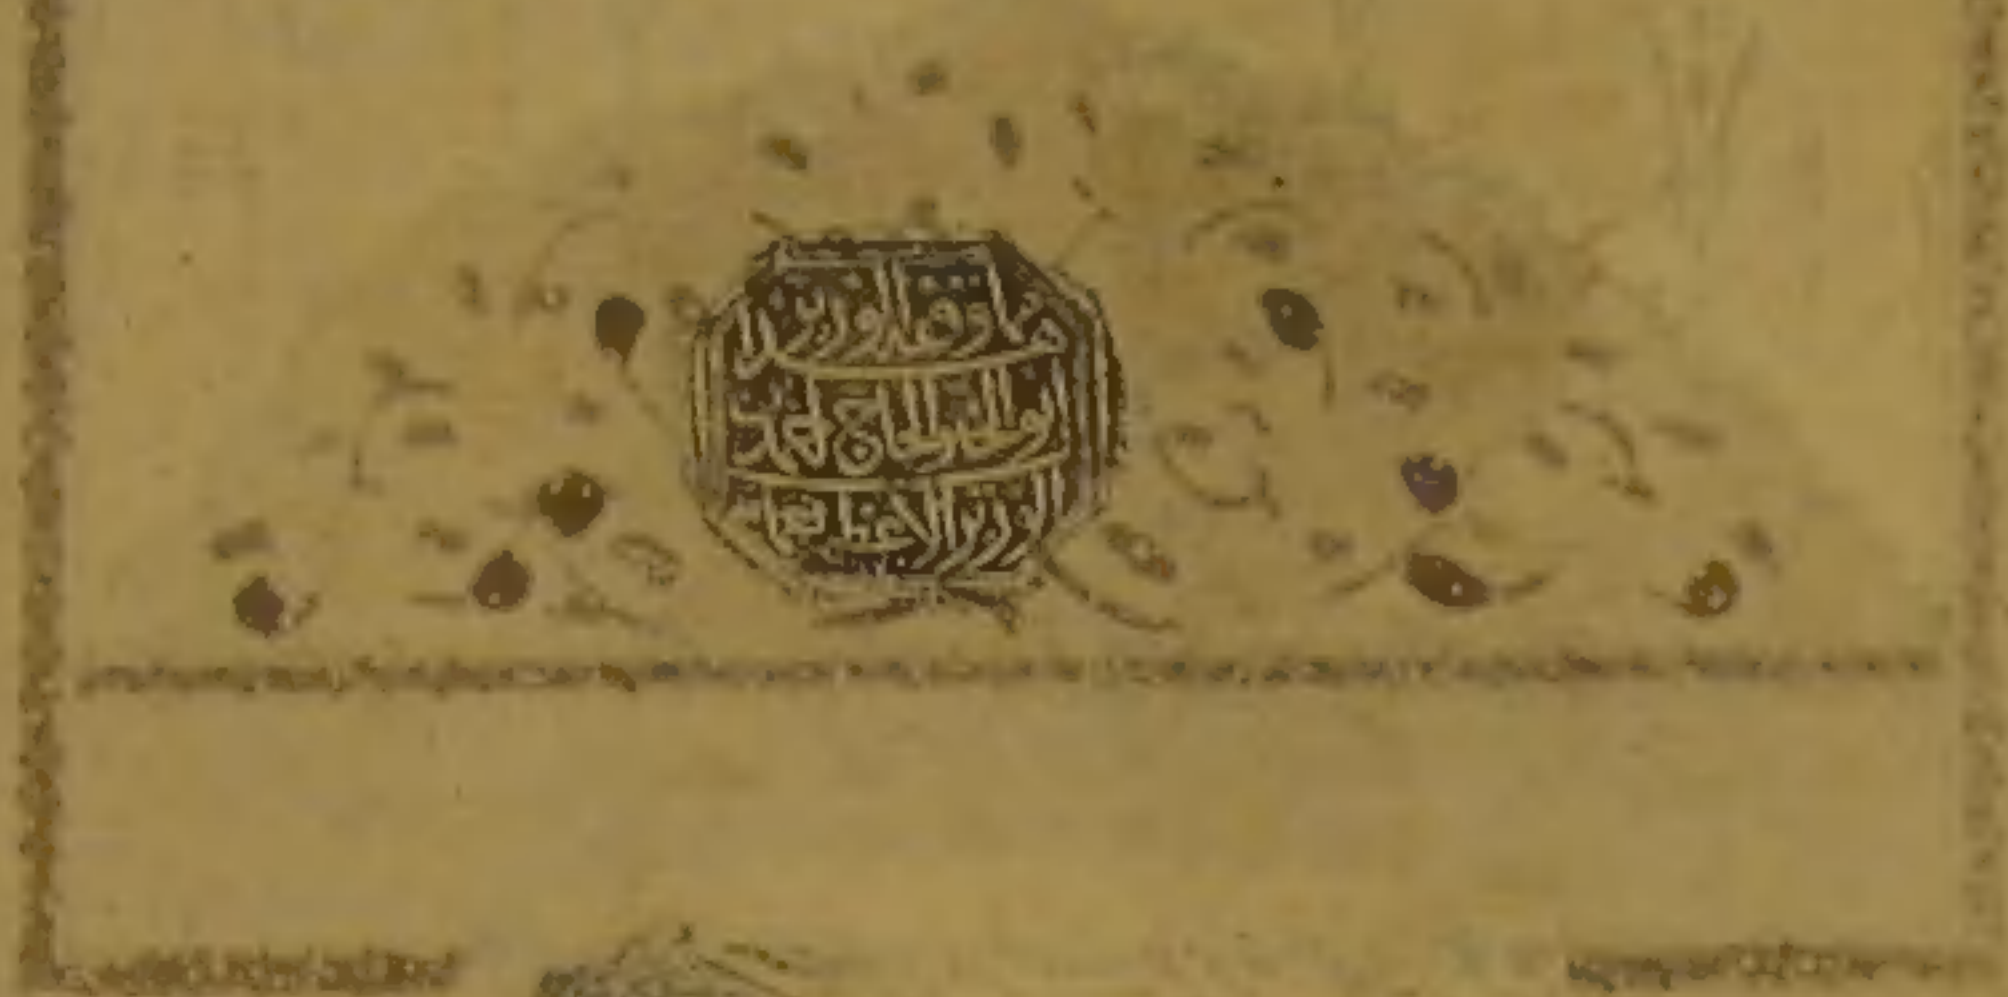 مما وقفه الوزير
ابو الخير الحاج احمد
الوزير الاعظم نعمان